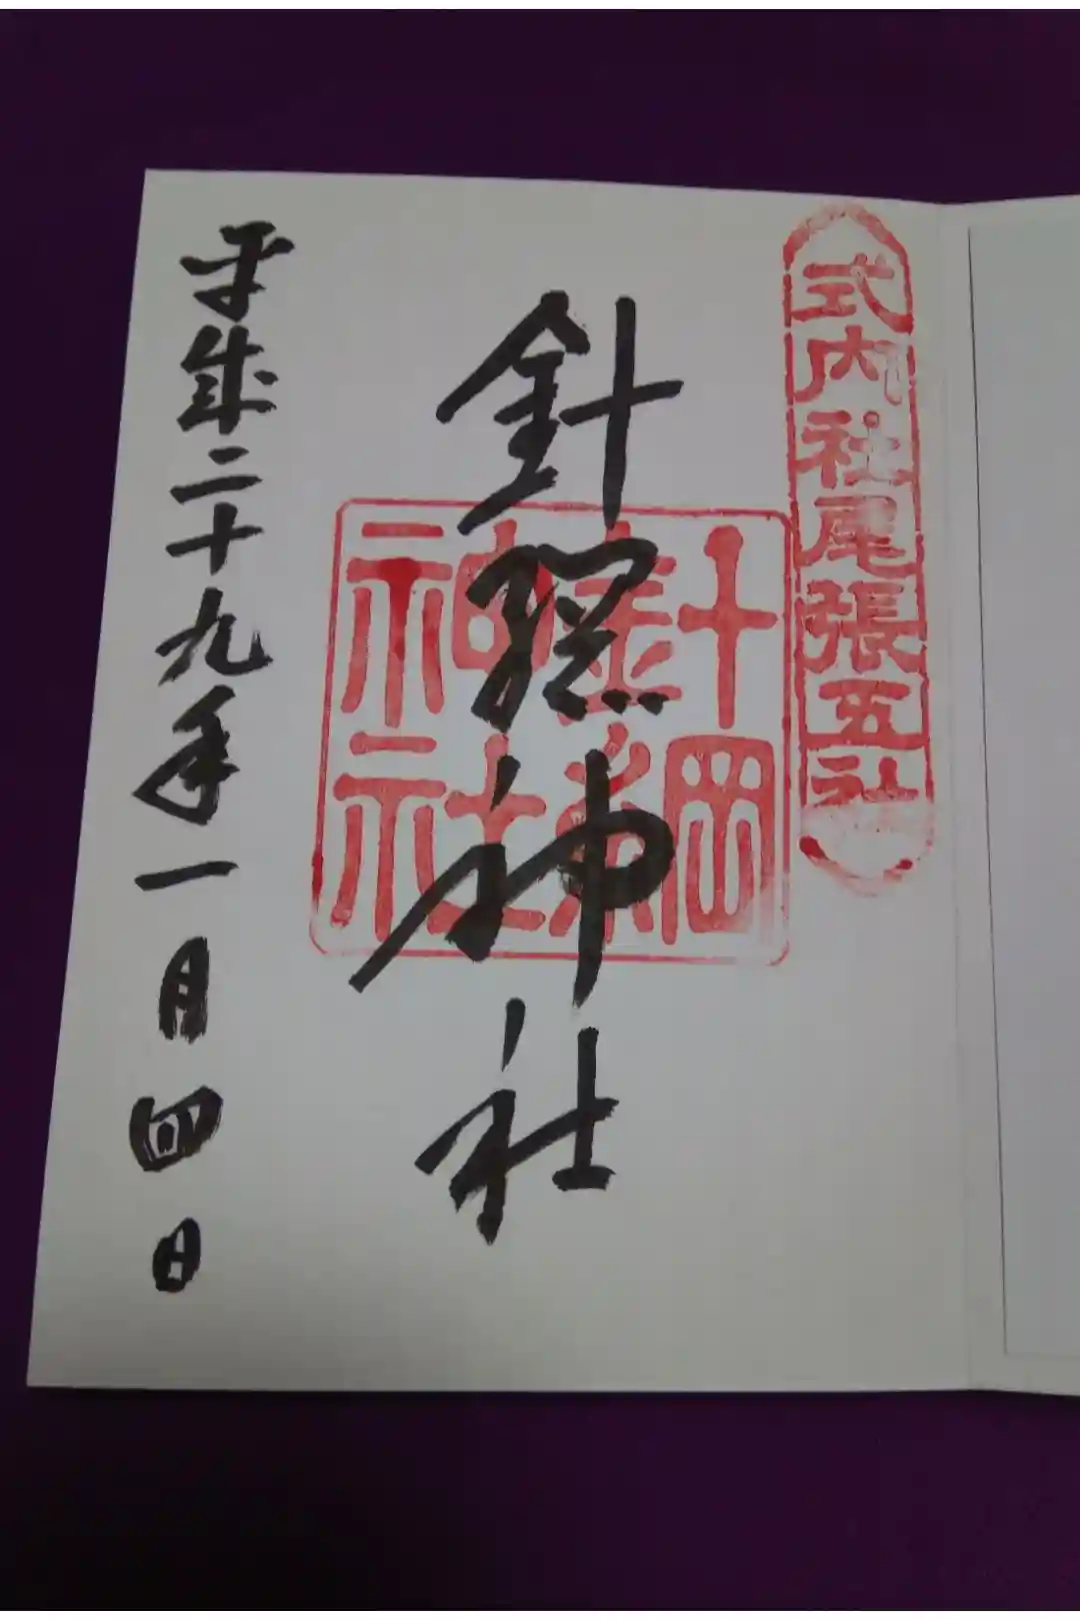 式内社尾張五社
針綱神社
針綱神社
平成二十九年一月四日